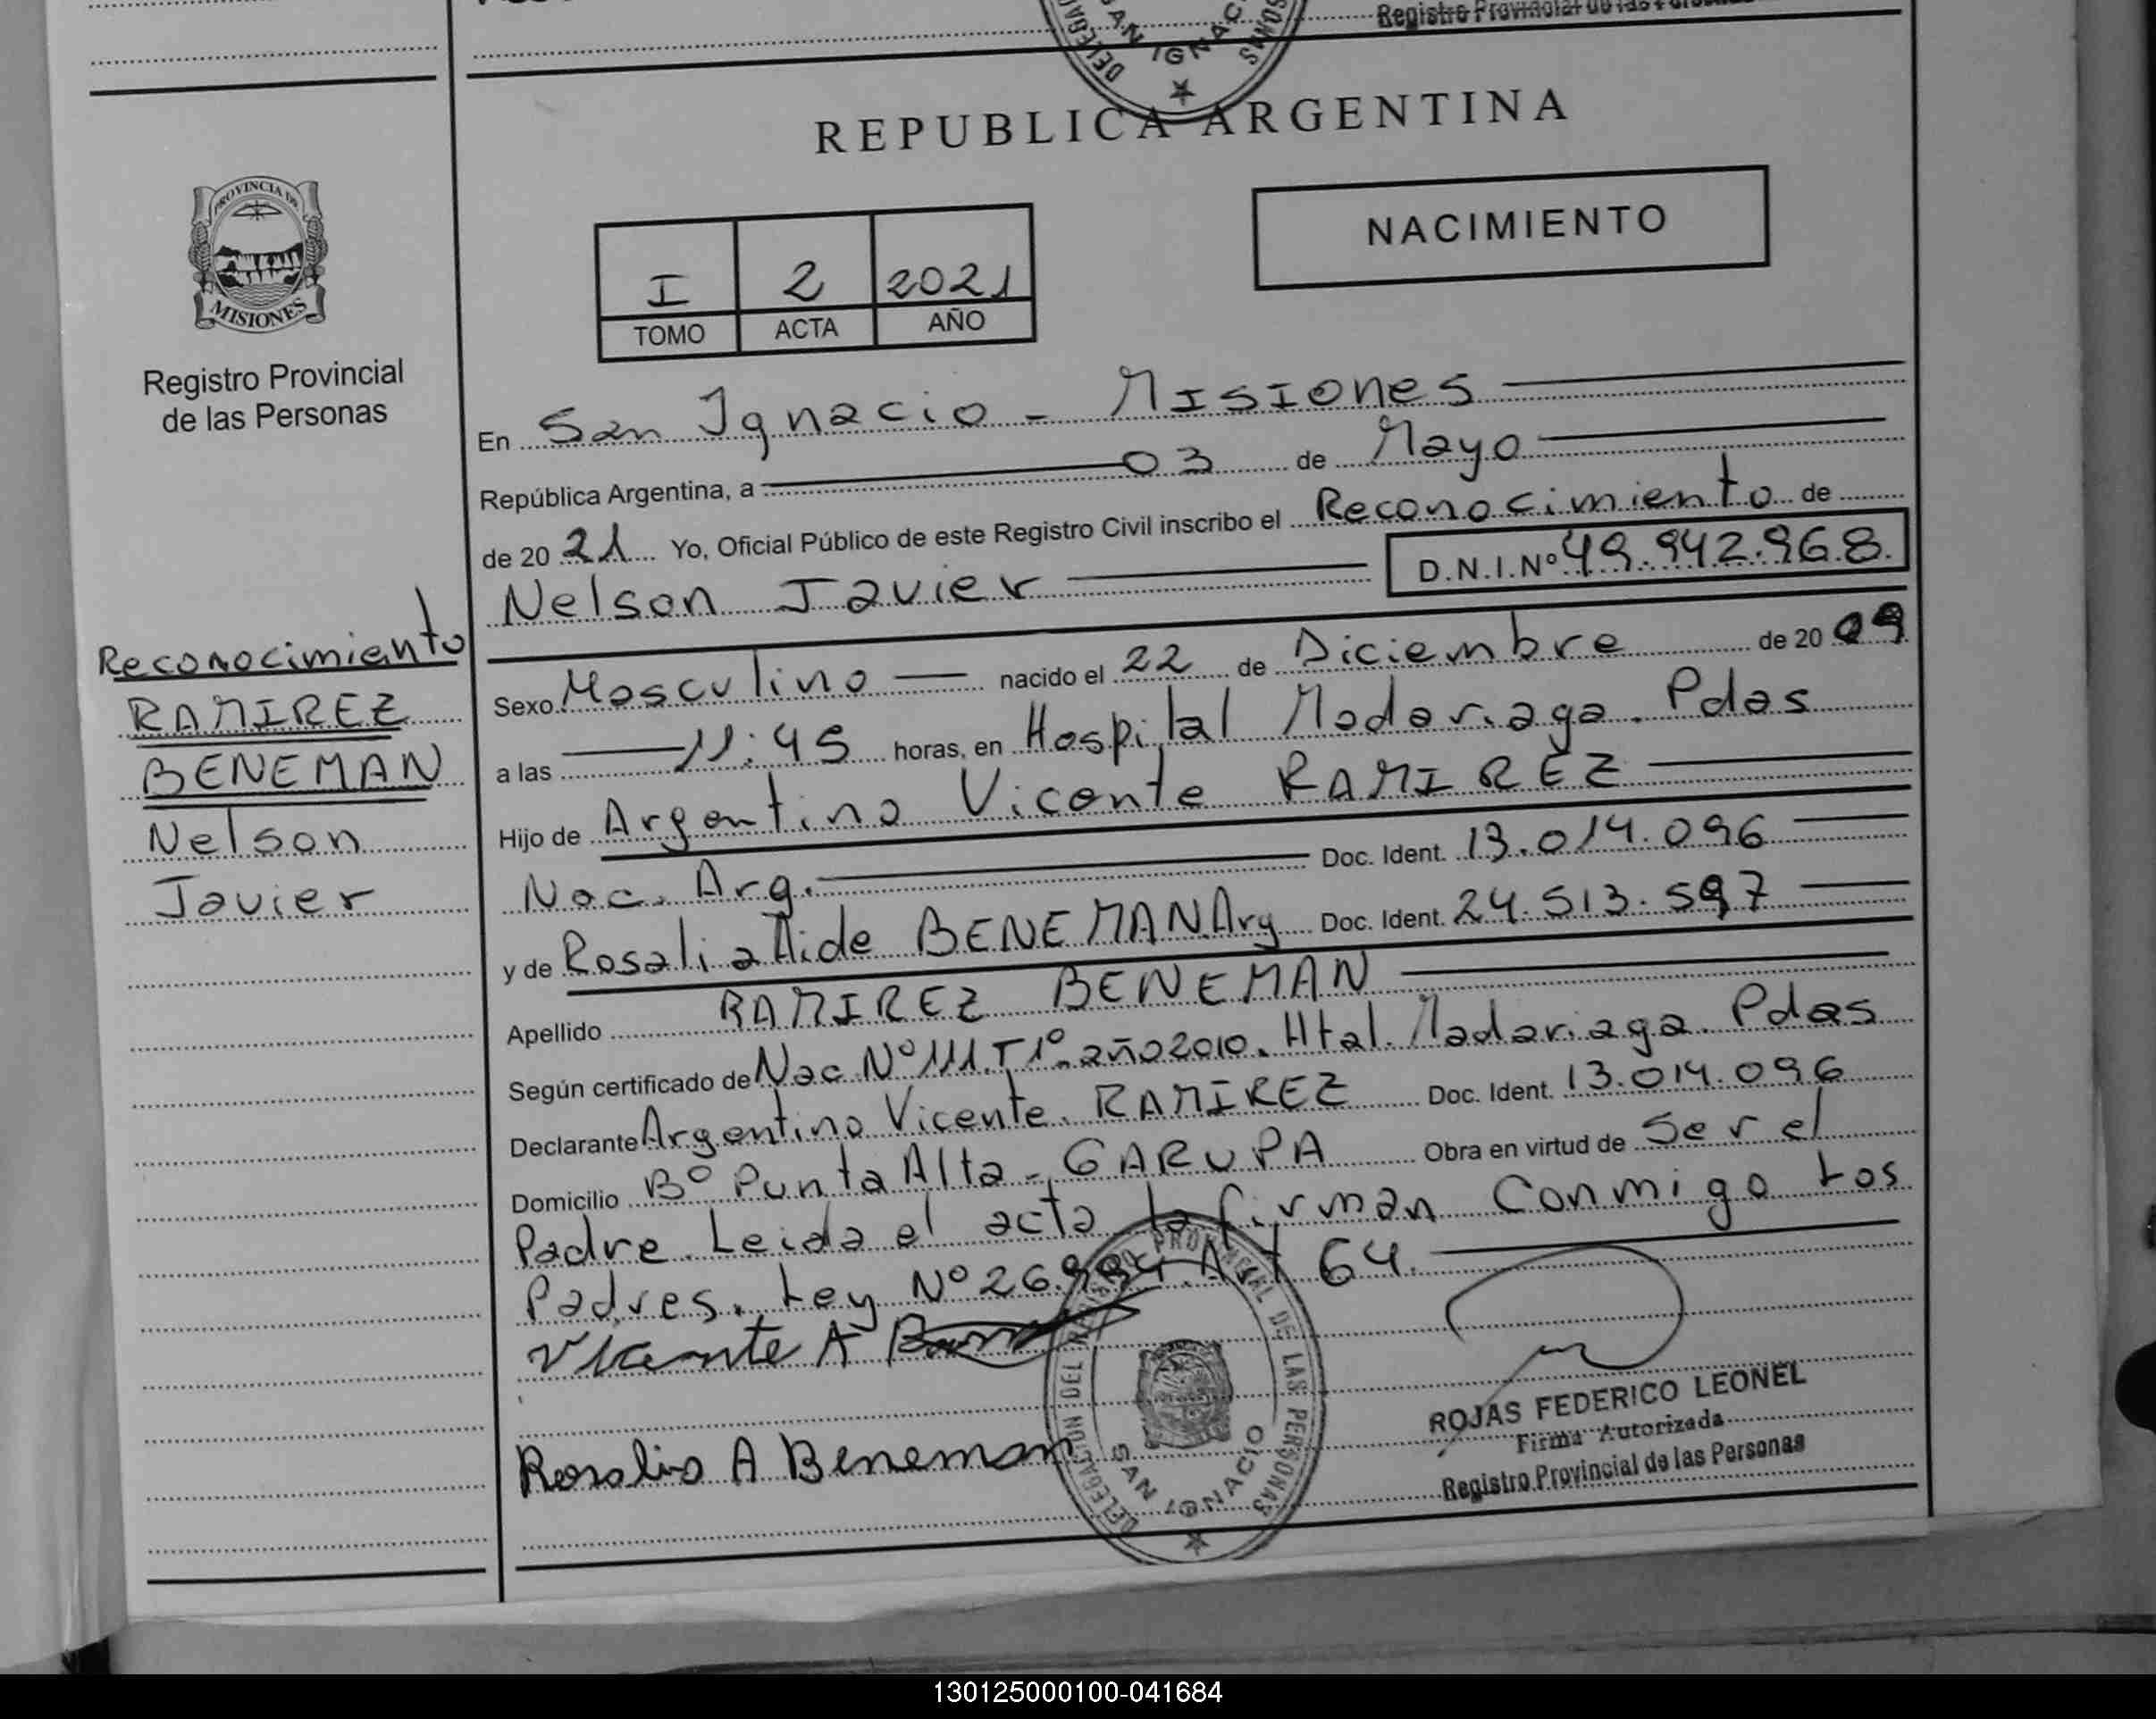 Registro Provincial de las Personas
DELEGA
SAN IGNAC
SONAS
REPUBLICA ARGENTINA
PROVINCIA DE
MISIONES
Registro Provincial
de las Personas
NACIMIENTO
I 2 2021
TOMO ACTA AÑO
En San Ignacio - Misiones
República Argentina, a 03 de Mayo
de 20 21 Yo, Oficial Público de este Registro Civil inscribo el Reconocimiento de
Nelson Javier D.N.I.Nº 49.942.968
Reconocimiento
RAMIREZ
BENEMAN
Nelson
Javier
Sexo Masculino nacido el 22 de Diciembre de 20 09
a las 11:45 horas, en Hospital Madariaga. Pdas
Hijo de Argentino Vicente RAMIREZ
Nac. Arg. Doc. Ident. 13.014.096
y de Rosalia Aide BENEMAN Arg Doc. Ident. 24.513.597
Apellido RAMIREZ BENEMAN
Según certificado de Nac Nº 111. T 1º. año 2010. Htal. Madariaga. Pdas
Declarante Argentino Vicente. RAMIREZ Doc. Ident. 13.014.096
Domicilio Bº Punta Alta - GARUPA Obra en virtud de Ser el
Padre. Leida el acta la firman Conmigo Los
Padres. Ley Nº 26.994. Art 64.
Vicente A
Rosalia A Beneman
DELEGACION DEL REGISTRO PROVINCIAL DE LAS PERSONAS
SAN IGNACIO
ROJAS FEDERICO LEONEL
Firma Autorizada
Registro Provincial de las Personas
130125000100-041684